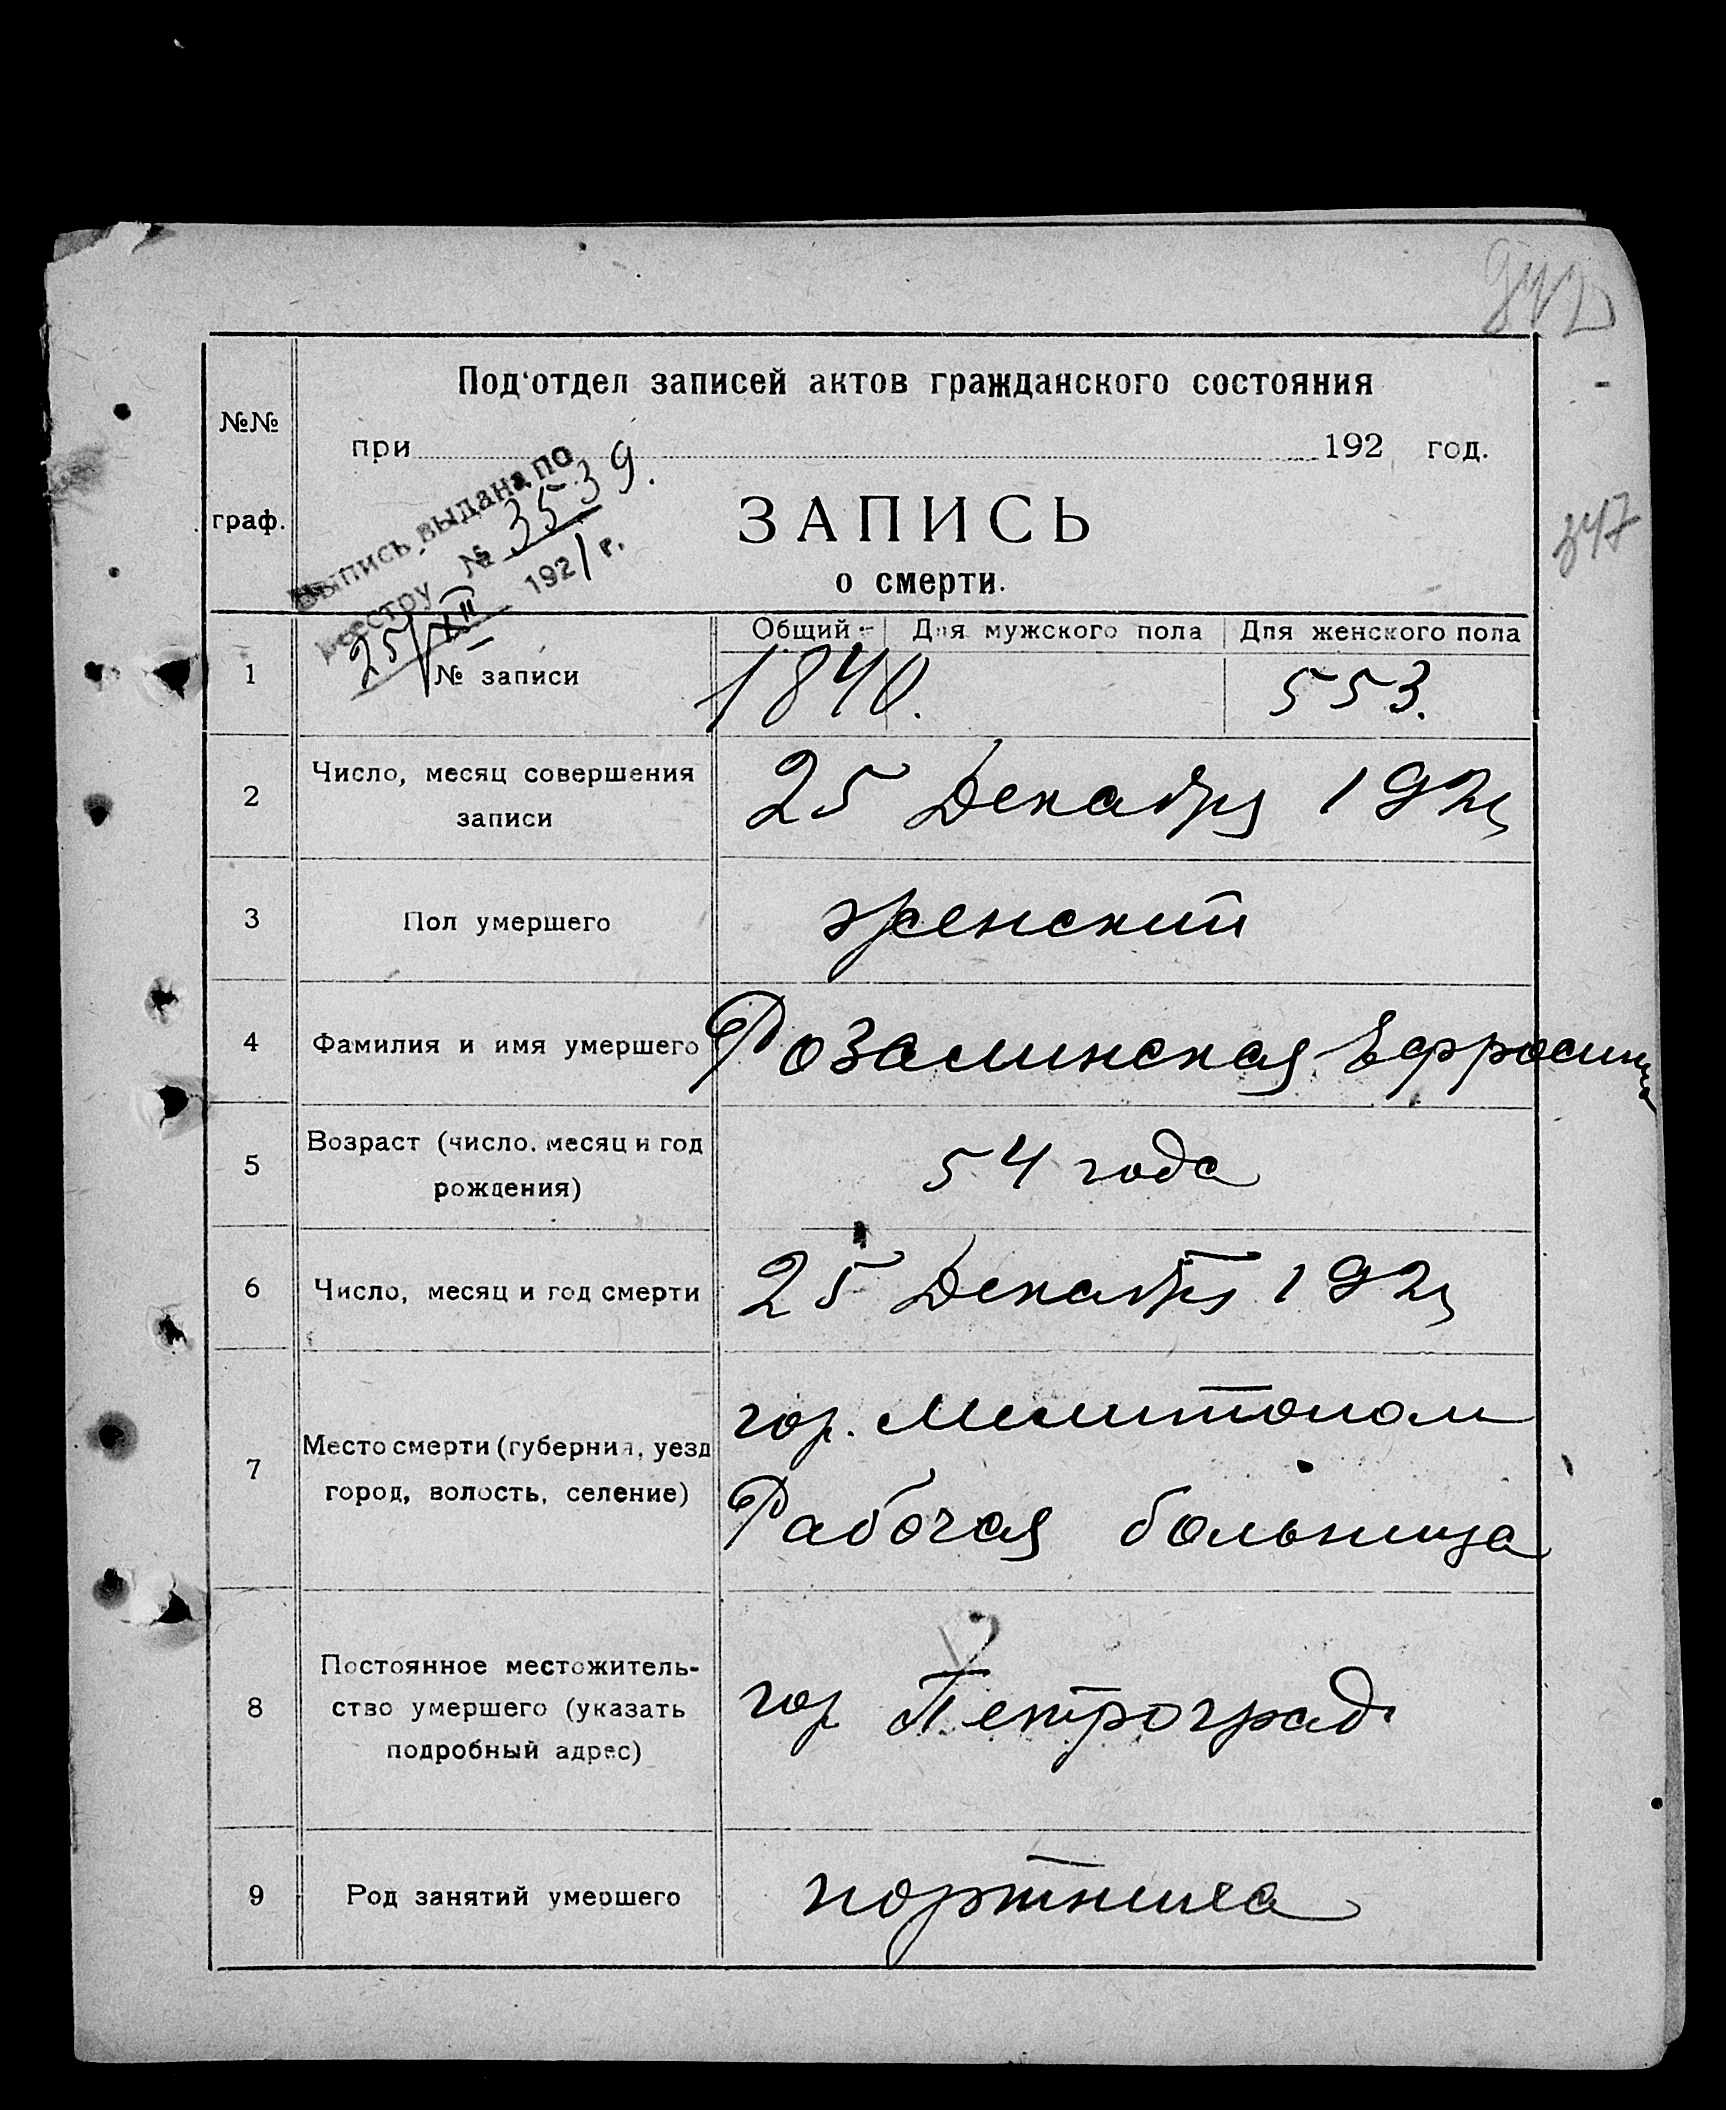 942
347
№№
граф.
Под'отдел записей актов гражданского состояния
при 192 год.
Выпись выдана по
реестру № 3539.
25/XII 1921 г.
ЗАПИСЬ
о смерти.
Общий Для мужского пола Для женского пола
1 № записи 1840. 553.
2 Число, месяц совершения
записи
25 Декабря 1921
3 Пол умершего женский
4 Фамилия и имя умершего Розалинская Ефросиния
5 Возраст (число, месяц и год
рождения)
54 года
6 Число, месяц и год смерти 25 Декабря 1921
7 Место смерти (губерния, уезд
город, волость, селение)
гор. Мелитополь
Рабочая больница
8 Постоянное местожитель-
ство умершего (указать
подробный адрес)
гор Петроград
9 Род занятий умершего портниха